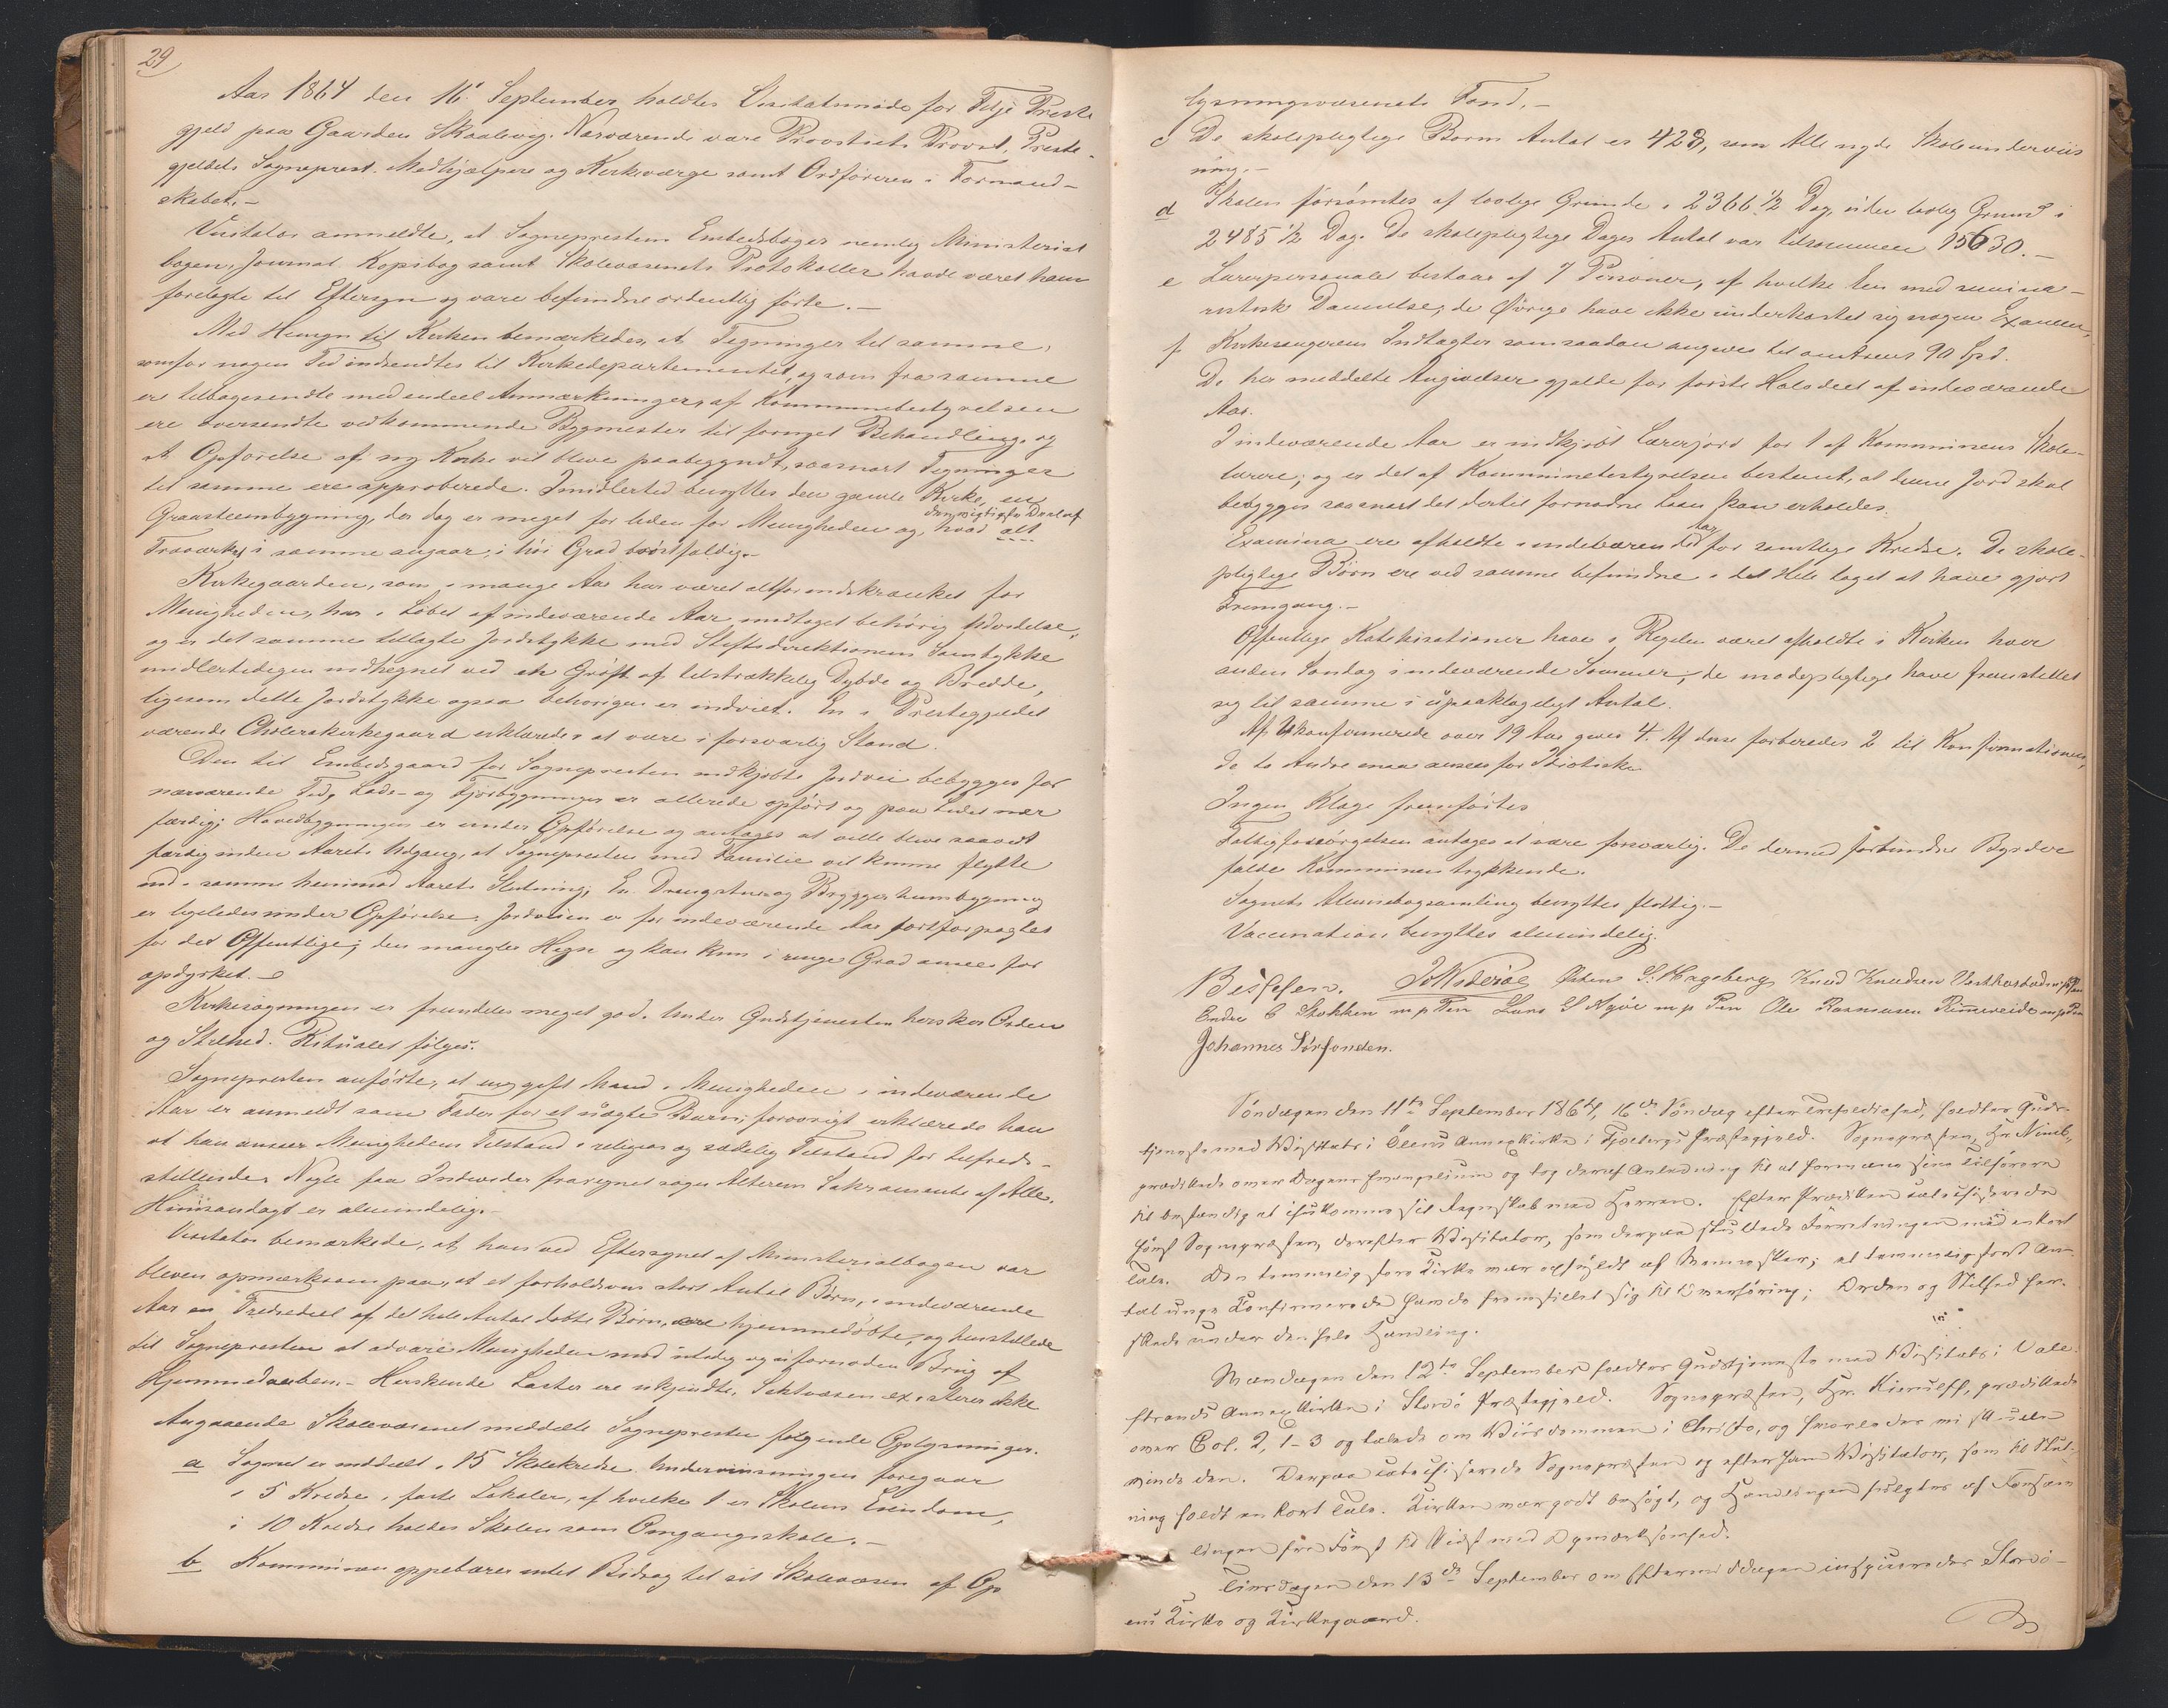 29
Aar 1864 den 16.' September holdtes Visitatsmøde for Fitje Preste
gjeld paa Gaarden Skaalevig. Nærværende vare Provstiets Provst, Preste-
gjeldets Sogneprest, Medhjælpere og Kirkeværge samt Ordføreren i Formand-
skabet. —
Visitator anmeldte, at Sogneprestens Embedsbøger nemlig Ministerial
bogen, Journal, Kopibog samt Skolevæsenets Protokoller havde været ham
forelagte til Eftersyn og vare befundne ordentlig førte. —
Med Hensyn til Kirken bemærkedes, at Tegninger til samme,
som for nogen Tid indsendtes til Kirkedepartementet, og som fra samme
er tilbagesendte med endeel Anmærkninger, af Kommunebestyrelsen
ere oversendte vedkommende Bygmester til fornyet Behandling, og
at Opførelse af ny Kirke vil blive paabegyndt, saasnart Tegninger
til samme ere approberede. Imidlertid benyttes den gamle Kirke, en
Graasteensbygning, der dog er meget for liden for Menigheden og, hvad den vigtigste Deel af alt
Træværket i samme angaar, i høi Grad brøstfældig. —
Kirkegaarden, som i mange Aar har været altfor indskrænket for
Menigheden, har i Løbet af indeværende Aar modtaget behørig Udvidelse,
og er det samme tillagte Jordstykke med Stiftsdirektionens Samtykke
midlertidigen indhegnet ved en Grøft af tilstrækkelig Dybde og Bredde,
ligesom dette Jordstykke ogsaa behørigen er indviet. En i Prestegjeldet
værende Cholerakirkegaard erklæredes at være i forsvarlig Stand.
Den til Embedsgaard for Sognepresten indkjøbte Jordvei bebygges for
nærværende Tid, Lade- og Fjøsbygninger er allerede opført og paa Lidet nær
færdig; Hovedbygningen er under Opførelse og antages at ville blive saavidt
færdig inden Aarets Udgang, at Sognepresten med Familie vil kunne flytte
ind i samme henimod Aarets Slutning; En Drengestue og Bryggerhuusbygning
er ligeledes under Opførelse. Jordveien er for indeværende Aar bortforpagtet
for det Offentlige; den mangler Hegn og kan kun i ringe Grad ansees for
opdyrket. —
Kirkesøgningen er fremdeles meget god. Under Gudstjenesten hersker Orden
og Stilhed. Ritualet følges.
Sognepresten anførte, at en gift Mand i Menigheden i indeværende
Aar er anmeldt som Fader for et uægte Barn; forøvrigt erklærede han
at han ansaae Menighedens Tilstand i religiøs og sædelig Tilstand for tilfreds-
stillende. Nogle faa Individer fraregnet søges Alterens Sakramente af Alle.
Huusandagt er almindelig. —
Visitator bemærkede, at han ved Eftersynet af Ministerialbogen var
bleven opmærksom paa, at et forholdsvis stort Antal Børn, i indeværende
Aar en Trediedeel af det hele Antal døbte Børn, vare hjemmedøbte, og henstillede
til Sognepresten at advare Menigheden mod utidig og ufornøden Brug af
Hjemmedaaben. — Herskende Laster ere ukjendte. Sektvæsen existerer ikke
Angaaende Skolevæsenet meddelte Sognepresten følgende Oplysninger.
a Sognet er inddeelt i 15 Skolekredse. Underviisningen foregaar
i 5 Kredse i faste Lokaler, af hvilke 1 er Skolens Eiendom,
i 10 Kredse holdes Skolen som Omgangsskole. —
b Kommunen oppebærer intet Bidrag til sit Skolevæsen af Op
lysningsvæsenets Fond. —
c De skolepligtige Børns Antal er 428, som Alle nyde Skoleunderviis
ning. —
d Skolen forsømtes af lovlige Grunde i 2366 1/2 Dag, uden lovlig Grund i
2485 1/2 Dag. De skolepligtige Dages Antal var tilsammen 15630. —
e Lærerpersonalet bestaar af 7 Personer, af hvilke En med semina-
ristisk Dannelse; de Øvrige have ikke underkastet sig nogen Examen,
f. Kirkesangerens Indtægter som saadan angives til omtrent 90 Spd.
De her meddelte Angivelser gjælde for første Halvdeel af indeværende
Aar.
I indeværende Aar er indkjøbt Lærerjord for 1 af Kommunens Skole-
lærere; og er det af Kommunebestyrelsen bestemt, at denne Jord skal
bebygges saasnart det dertil fornødne Laan kan erholdes.
Examina ere afholdte i indeværende Aar for samtlige Kredse. De skole-
pligtige Børn ere ved samme befundne i det Hele taget at have gjort
Fremgang. —
Offentlige Katekisationer have i Regelen været afholdte i Kirken hver
anden Søndag i indeværende Sommer; de mødepligtige have fremstillet
sig til samme i upaaklageligt Antal.
Af Ukonfirmerede over 19 Aar gives 4. Af disse forberedes 2 til Konfirmationen,
de to Andre maa ansees for Idiotiske
Ingen Klage fremførtes
Fattigforsørgelsen antages at være forsvarlig. De dermed forbundne Byrder
falde Kommunen trykkende.
Sognets Almuebogsamling benyttes flittig. —
Vaccination benyttes almindelig.
Østen S. Hageberg Knud Knudsen
Endre Stokken m p Pen Lars S Agöe m p Pen Ole Rasmusen Rimmereide m p Pen
Johannes Sørfonden.
Söndagen den 11te September 1864, 16de Söndag efter Trefoldighed, holdtes Guds-
tjeneste med Visitats i Ölens Annexkirke i Fjælbergs Præstegjeld. Sognepræsten, Hr. 
prædikede over Dagens Evangelium og tog deraf Anledning til at formane sine Tilhörere
til bestandig at ihukomme sit Regnskab med Herren. Efter Prædiken catechiserede
först Sognepræsten, derefter Visitator, som derpaa sluttede Forretningen med en kort
Tale. Den temmelig store Kirke var opfyldt af Mennesker; et temmelig stort An-
tal unge Confirmerede havde fremstillet sig til Overhöring; Orden og Stilhed her-
skede under den hele Handling.
Mandagen den 12te September holdtes Gudstjeneste med Visitats i Vale-
strands Annexkirke i Stordö Præstegjeld. Sognepræsten, Hr. Kierulff, prædikede
over Col. 2, 1-3 og talede om Viisdommen i Christo, og hvorledes vi skulle
vinde den. Derpaa catechiserede Sognepræsten og efter ham Visitator, som til Slut-
ning holdt en kort Tale. Kirken var godt besögt, og Handlingen fulgtes af Forsam
lingen fra Först til Sidst med Opmærksomhed.
Tirsdagen den 13de September om Eftermiddagen inspiceredes Stordö-
ens Kirke og Kirkegaard.